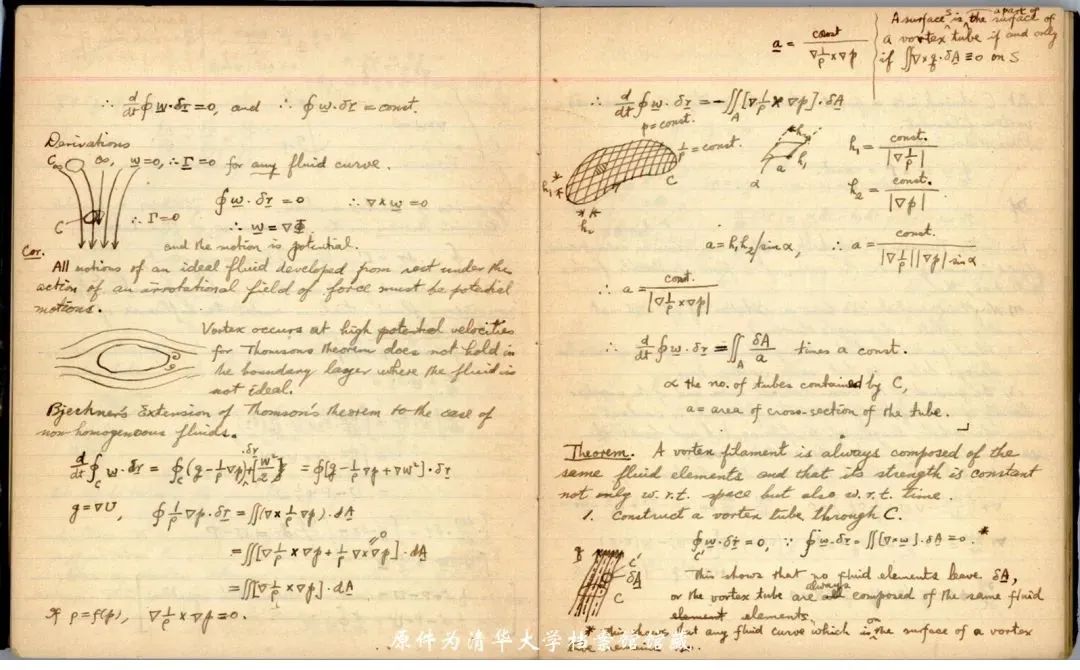 ∴ d/dt ∮ w·δr = 0, and ∴ ∮ w·δr = const.
Derivations
C∞ ∞, w = 0, ∴ Γ = 0 for any fluid curve.
∮ w·δr = 0 ∴ ∇×w = 0
C ∴ Γ = 0 ∴ w = ∇Φ
and the motion is potential.
Cor.
All motions of an ideal fluid developed from rest under the
action of an irrotational field of force must be potential
motions.
Vortex occurs at high potential velocities
for Thomsons theorem does not hold in
the boundary layer where the fluid is
not ideal.
Bjerkner's Extension of Thomson's theorem to the case of
non-homogeneous fluids.
d/dt ∮_C w·δr = ∮_C (g - 1/ρ ∇p)·δr + [w²/2] = ∮[g - 1/ρ ∇p + ∇w²]·δr
g = ∇U, ∮ 1/ρ ∇p·δr = ∬(∇× 1/ρ ∇p)·dA
= ∬[∇ 1/ρ × ∇p + 1/ρ ∇×∇p]·dA
0
= ∬[∇ 1/ρ × ∇p]·dA
If ρ = f(p), ∇ 1/ρ × ∇p = 0.
a = const / ∇ 1/ρ × ∇p
A surface S is the surface of
a part of
a vortex tube if and only
if ∬∇×q·δA ≡ 0 on S
∴ d/dt ∮ w·δr = -∬_A [∇ 1/ρ × ∇p]·δA
p = const.
1/ρ = const.
C
h₁
h₂
h₂
a h₁
α
h₁ = const. / |∇ 1/ρ|
h₂ = const. / |∇p|
a = h₁h₂/sin α, ∴ a = const. / |∇ 1/ρ||∇p| sin α
∴ a = const. / |∇ 1/ρ × ∇p|
∴ d/dt ∮ w·δr = ∬_A δA/a times a const.
α the no. of tubes contained by C,
a = area of cross-section of the tube.
Theorem. A vortex filament is always composed of the
same fluid elements and that its strength is constant
not only w.r.t. space but also w.r.t. time.
1. Construct a vortex tube through C.
∮_C' w·δr = 0, ∵ ∮_C' w·δr = ∬[∇×w]·δA = 0. *
C'
δA
C
This shows that no fluid elements leave δA,
or the vortex tube are always composed of the same fluid
elements.
* This shows that any fluid curve which is on the surface of a vortex
原件为清华大学档案馆馆藏